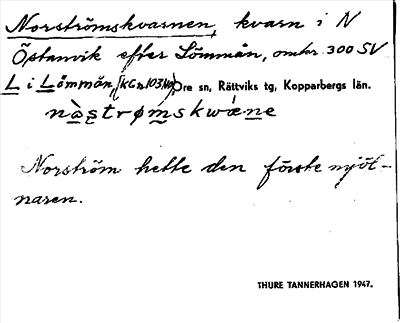 Norströmskvarnen, kvarn i N
Östanvik efter Lömmån, omkr. 300 SV
L i Lömmån, Ore sn, Rättviks tg, Kopparbergs län.
nàstrømskwáene
Norström hette den förste mjöl-
naren.
THURE TANNERHAGEN 1947.